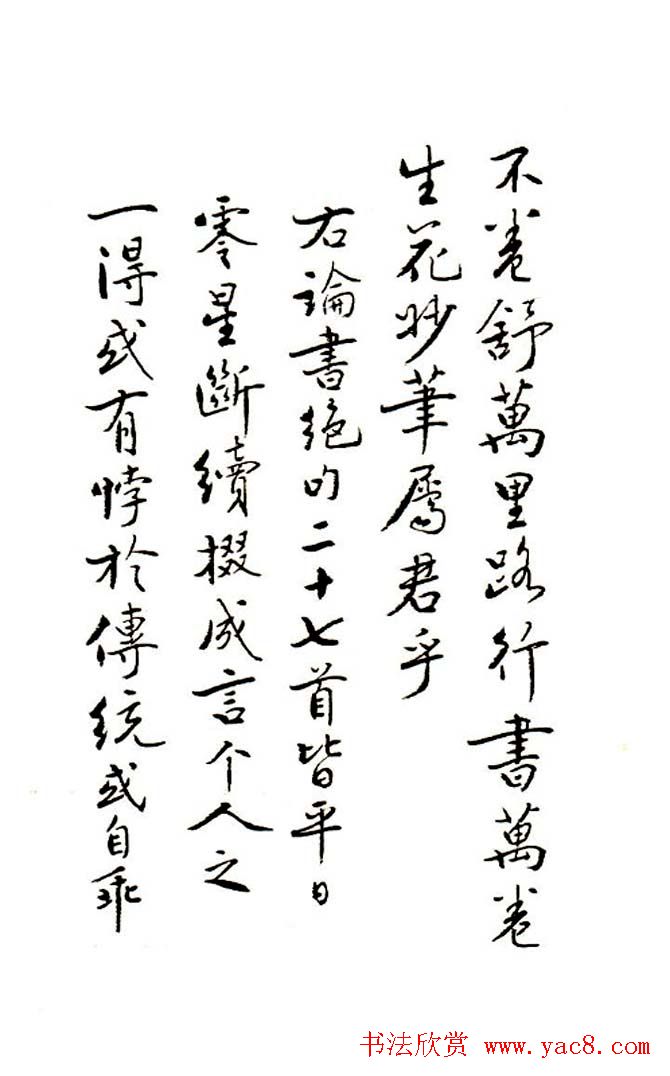 不卷舒萬里路行書萬卷
生花妙筆屬君乎
右論書絕句二十七首皆平日
零星斷續掇成言个人之
一得或有悖於傳統或自乖
书法欣赏 www.yac8.com